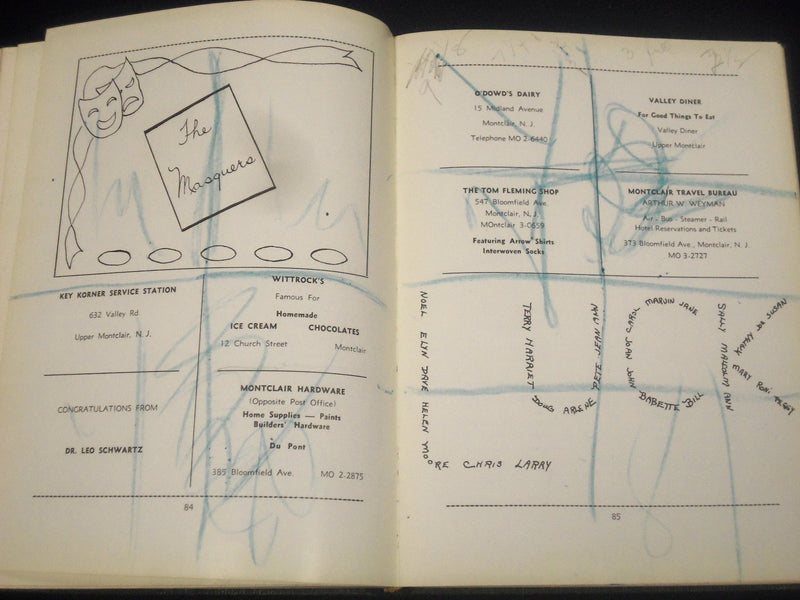 The
Masquers
KEY KORNER SERVICE STATION
632 Valley Rd.
Upper Montclair, N. J.
WITTROCK'S
Famous For
Homemade
ICE CREAM CHOCOLATES
12 Church Street Montclair
CONGRATULATIONS FROM
DR. LEO SCHWARTZ
MONTCLAIR HARDWARE
(Opposite Post Office)
Home Supplies — Paints
Builders' Hardware
Du Pont
385 Bloomfield Ave. MO 2-2875
84
O'DOWD'S DAIRY
15 Midland Avenue
Montclair, N. J.
Telephone MO 2-6440
VALLEY DINER
For Good Things To Eat
Valley Diner
Upper Montclair
THE TOM FLEMING SHOP
547 Bloomfield Ave.
Montclair, N. J.
MOntclair 3-0659
Featuring Arrow Shirts
Interwoven Socks
MONTCLAIR TRAVEL BUREAU
ARTHUR W. WEYMAN
Air - Bus - Steamer - Rail
Hotel Reservations and Tickets
373 Bloomfield Ave., Montclair, N. J.
MO 3-2727
NOEL ELYN DAVE HELEN MOORE CHRIS LARRY
TERRY HARRIET DOUG ARLENE PETE JEAN
CAROL JOAN JOHN BABETTE BILL
MARVIN JANE
SALLY MALCOLM ANN
KATHY DE SUSAN
MARY RON PEGGY
85